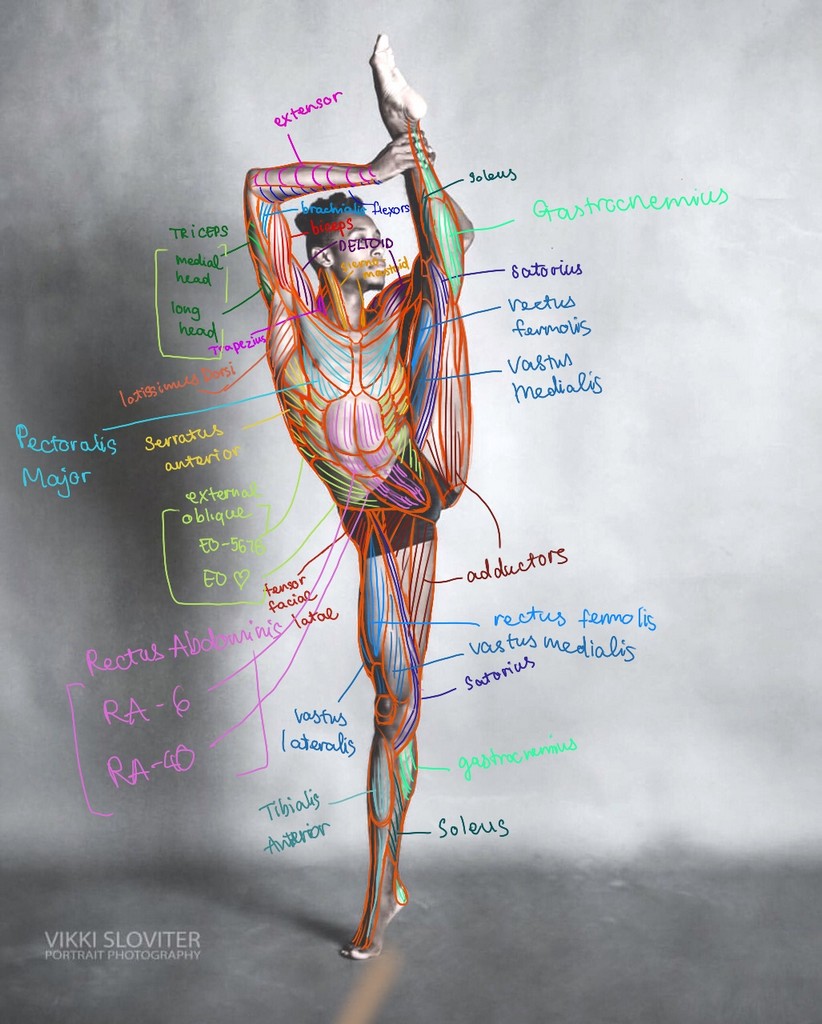 extensor
soleus
Gastrocnemius
brachialis
flexors
biceps
TRICEPS
DELTOID
medial
head
mastoid
Satorius
long
head
rectus
fermolis
Trapezius
latissimus Dorsi
vastus
Medialis
Pectoralis
Major
Serratus
anterior
external
oblique
EO-5678
EO ♡
adductors
tensor
facial
latae
rectus fermolis
Rectus Abdominis
vastus medialis
Satorius
RA-6
RA-40
vastus
lateralis
gastrocnemius
Tibialis
Anterior
Soleus
VIKKI SLOVITER
PORTRAIT PHOTOGRAPHY